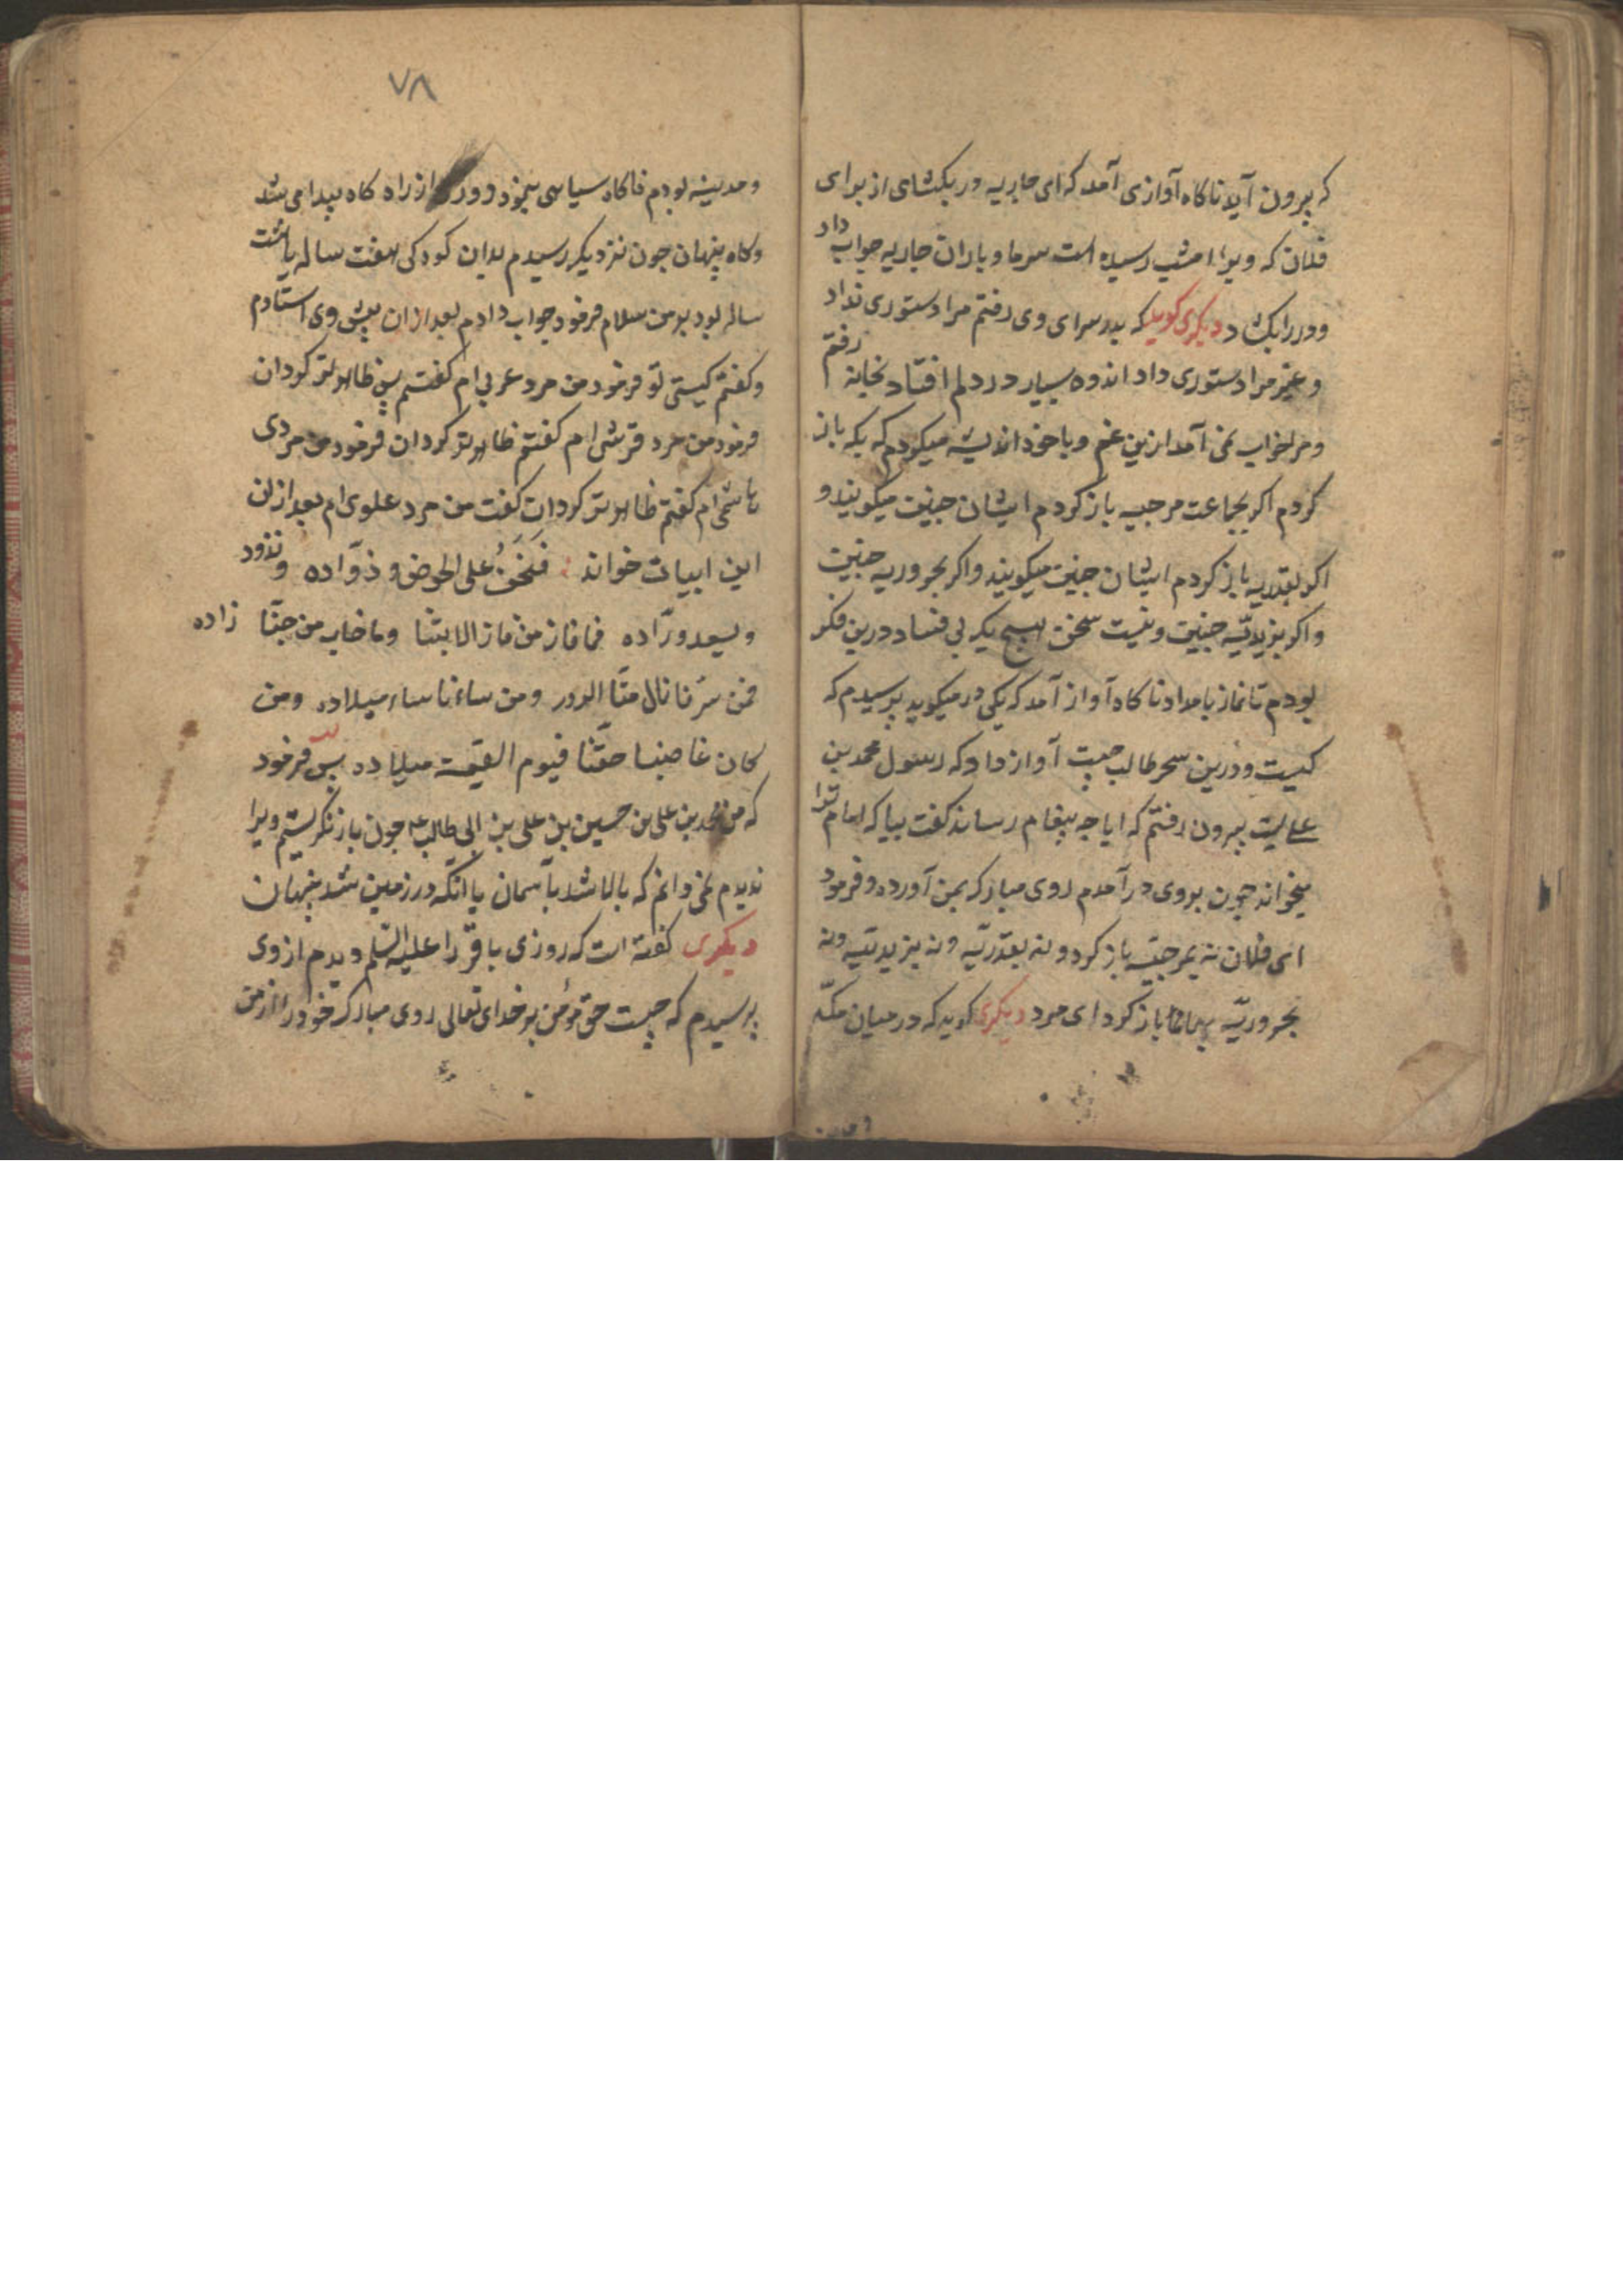 که بیرون آید ناکاه آوازی آمد که ای جاریه در بکشای از برای
فلان که ویرا امشب رسیده است سرما و باران جاریه جواب داد
و در را بکشاد دیکری کوید که بدر سرای وی رفتم مرا دستوری نداد
و غیر مرا دستوری داد اندوه بسیار در دلم افتاد بخانه رفتم
و مرا خواب نمی آمد ازین غم و با خود اندیشه میکردم که بکه باز
کردم اکر بجماعت مرجیه باز کردم ایشان چنین میکویند و
اکر بقدریه باز کردم ایشان چنین میکویند و اکر بحروریه چنین
و اکر بزیدیّه چنین و نیست سخن هیچ یک بی فساد درین فکر
بودم تا نماز بامداد ناکاه آواز آمد که یکی در میکوبد پرسیدم که
کیست و درین سحر طالب چیست آواز داد که رسول محمد بن
علیست بیرون رفتم که ایا چه پیغام رساند کفت بیا که امام ترا
میخواند چون بروی در آمدم روی مبارک بمن آورده و فرمود
ای فلان نه بمرجیّه باز کرد و نه بقدریّه و نه بزیدیّیه و نه
بحروریّه بما باز کرد ای مرد دیکری کوید که در میان مکّه
٧٨
و مدینه بودم ناکاه سیاهی نمود دور از راه کاه پیدا می شد
و کاه پنهان چون نزدیک رسیدم بدان کودکی هفت ساله یا هشت
ساله بود بر من سلام فرمود جواب دادم بعد ازان پیش وی استادم
و کفتم کیستی تو فرمود من مرد عربی ام کفتم پس ظاهرتر کردان
فرمود من مرد قرشی ام کفتم ظاهرتر کردان فرمود من مردی
هاشمی ام کفتم ظاهرتر کردان کفت من مرد علوی ام بعد ازان
این ابیات خواند فَنَحْنُ علی الحوض و ذوّاده و نذود
و یسعد ورّاده فما فاز من فاز الا بنا و ما خاب من حبّنا زاده
فمن سرّنا نال منّا السرور و من ساءنا ساء میلاده و من
کان غاصبنا حقّنا فیوم القیمة میلاده پس فرمود
که من محمد بن علی بن حسین بن علی بن ابی طالب ع چون باز نکریستم ویرا
ندیدم نمی دانم که بالا شد بآسمان یا انکه در زمین شد پنهان
دیکری کفته است که روزی باقر را علیه السّلم دیدم از وی
پرسیدم که چیست حق مؤمن بر خدای تعالی روی مبارک خود را از من